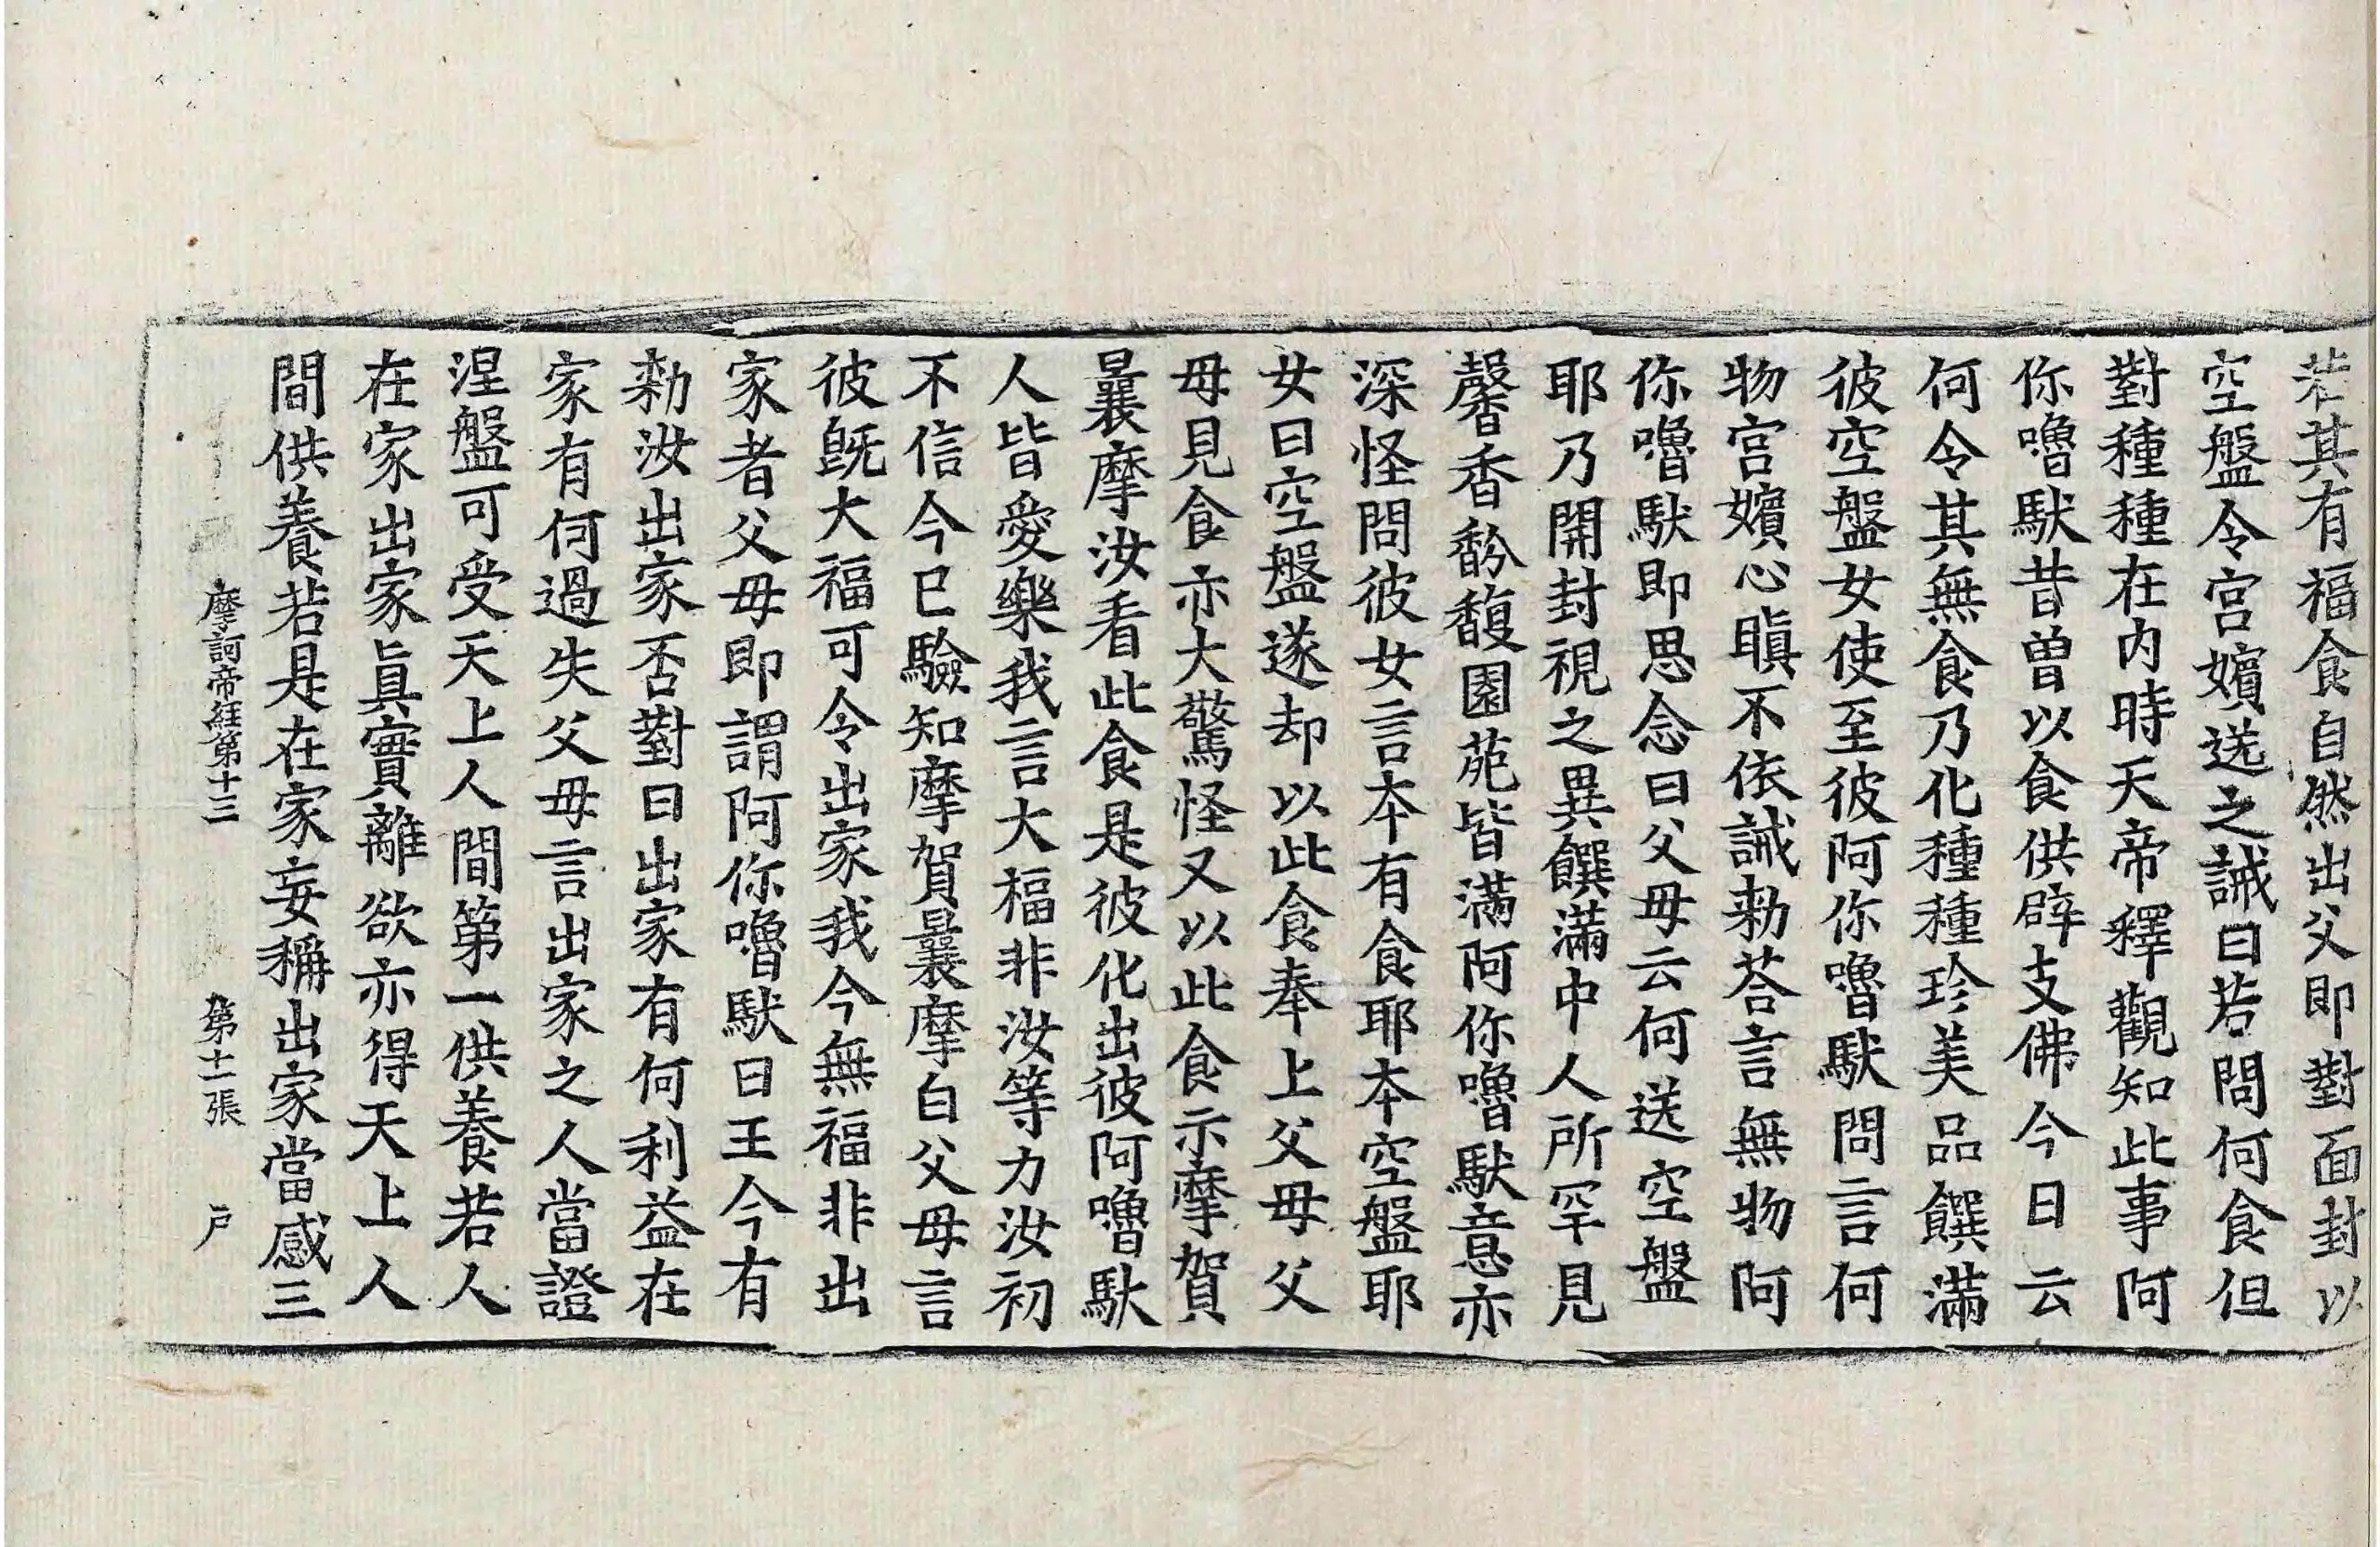 若其有福食自然出父即對面封以
空盤令宮嬪送之誡曰若問何食但
對種種在内時天帝釋觀知此事阿
你嚕馱昔曾以食供辟支佛今日云
何令其無食乃化種種珍美品饌滿
彼空盤女使至彼阿你嚕馱問言何
物宮嬪心瞋不依誡勑荅言無物阿
你嚕馱即思念曰父母云何送空盤
耶乃開封視之異饌滿中人所罕見
馨香馚馥園苑皆滿阿你嚕馱意亦
深怪問彼女言本有食耶本空盤耶
女曰空盤遂却以此食奉上父母父
母見食亦大驚怪又以此食示摩賀
曩摩汝看此食是彼化出彼阿嚕馱
人皆愛樂我言大福非汝等力汝初
不信今已驗知摩賀曩摩白父母言
彼既大福可令出家我今無福非出
家者父母即謂阿你嚕馱曰王今有
勑汝出家否對曰出家有何利益在
家有何過失父母言出家之人當證
涅盤可受天上人間第一供養若人
在家出家眞實離欲亦得天上人
間供養若是在家妄稱出家當感三
摩訶帝經第十三 第十一張 户